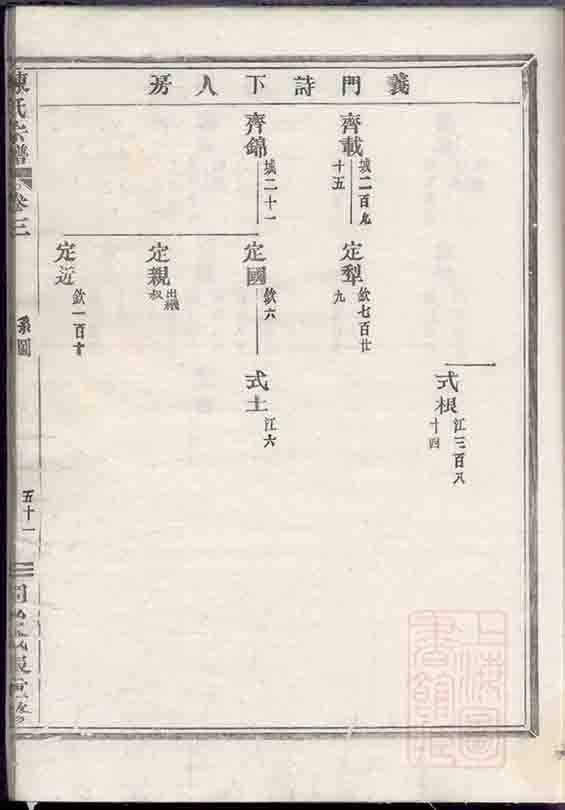 義門詩下人房
式根
江三百八
十四
齊載
城二百九
十五
定犁
欽七百廿
九
齊錦
城二十一
定國
欽六
式土
江六
定親
出繼
叔
定近
欽一百十
陳氏宗譜
卷三
系圖
五十一
上海圖
書館藏